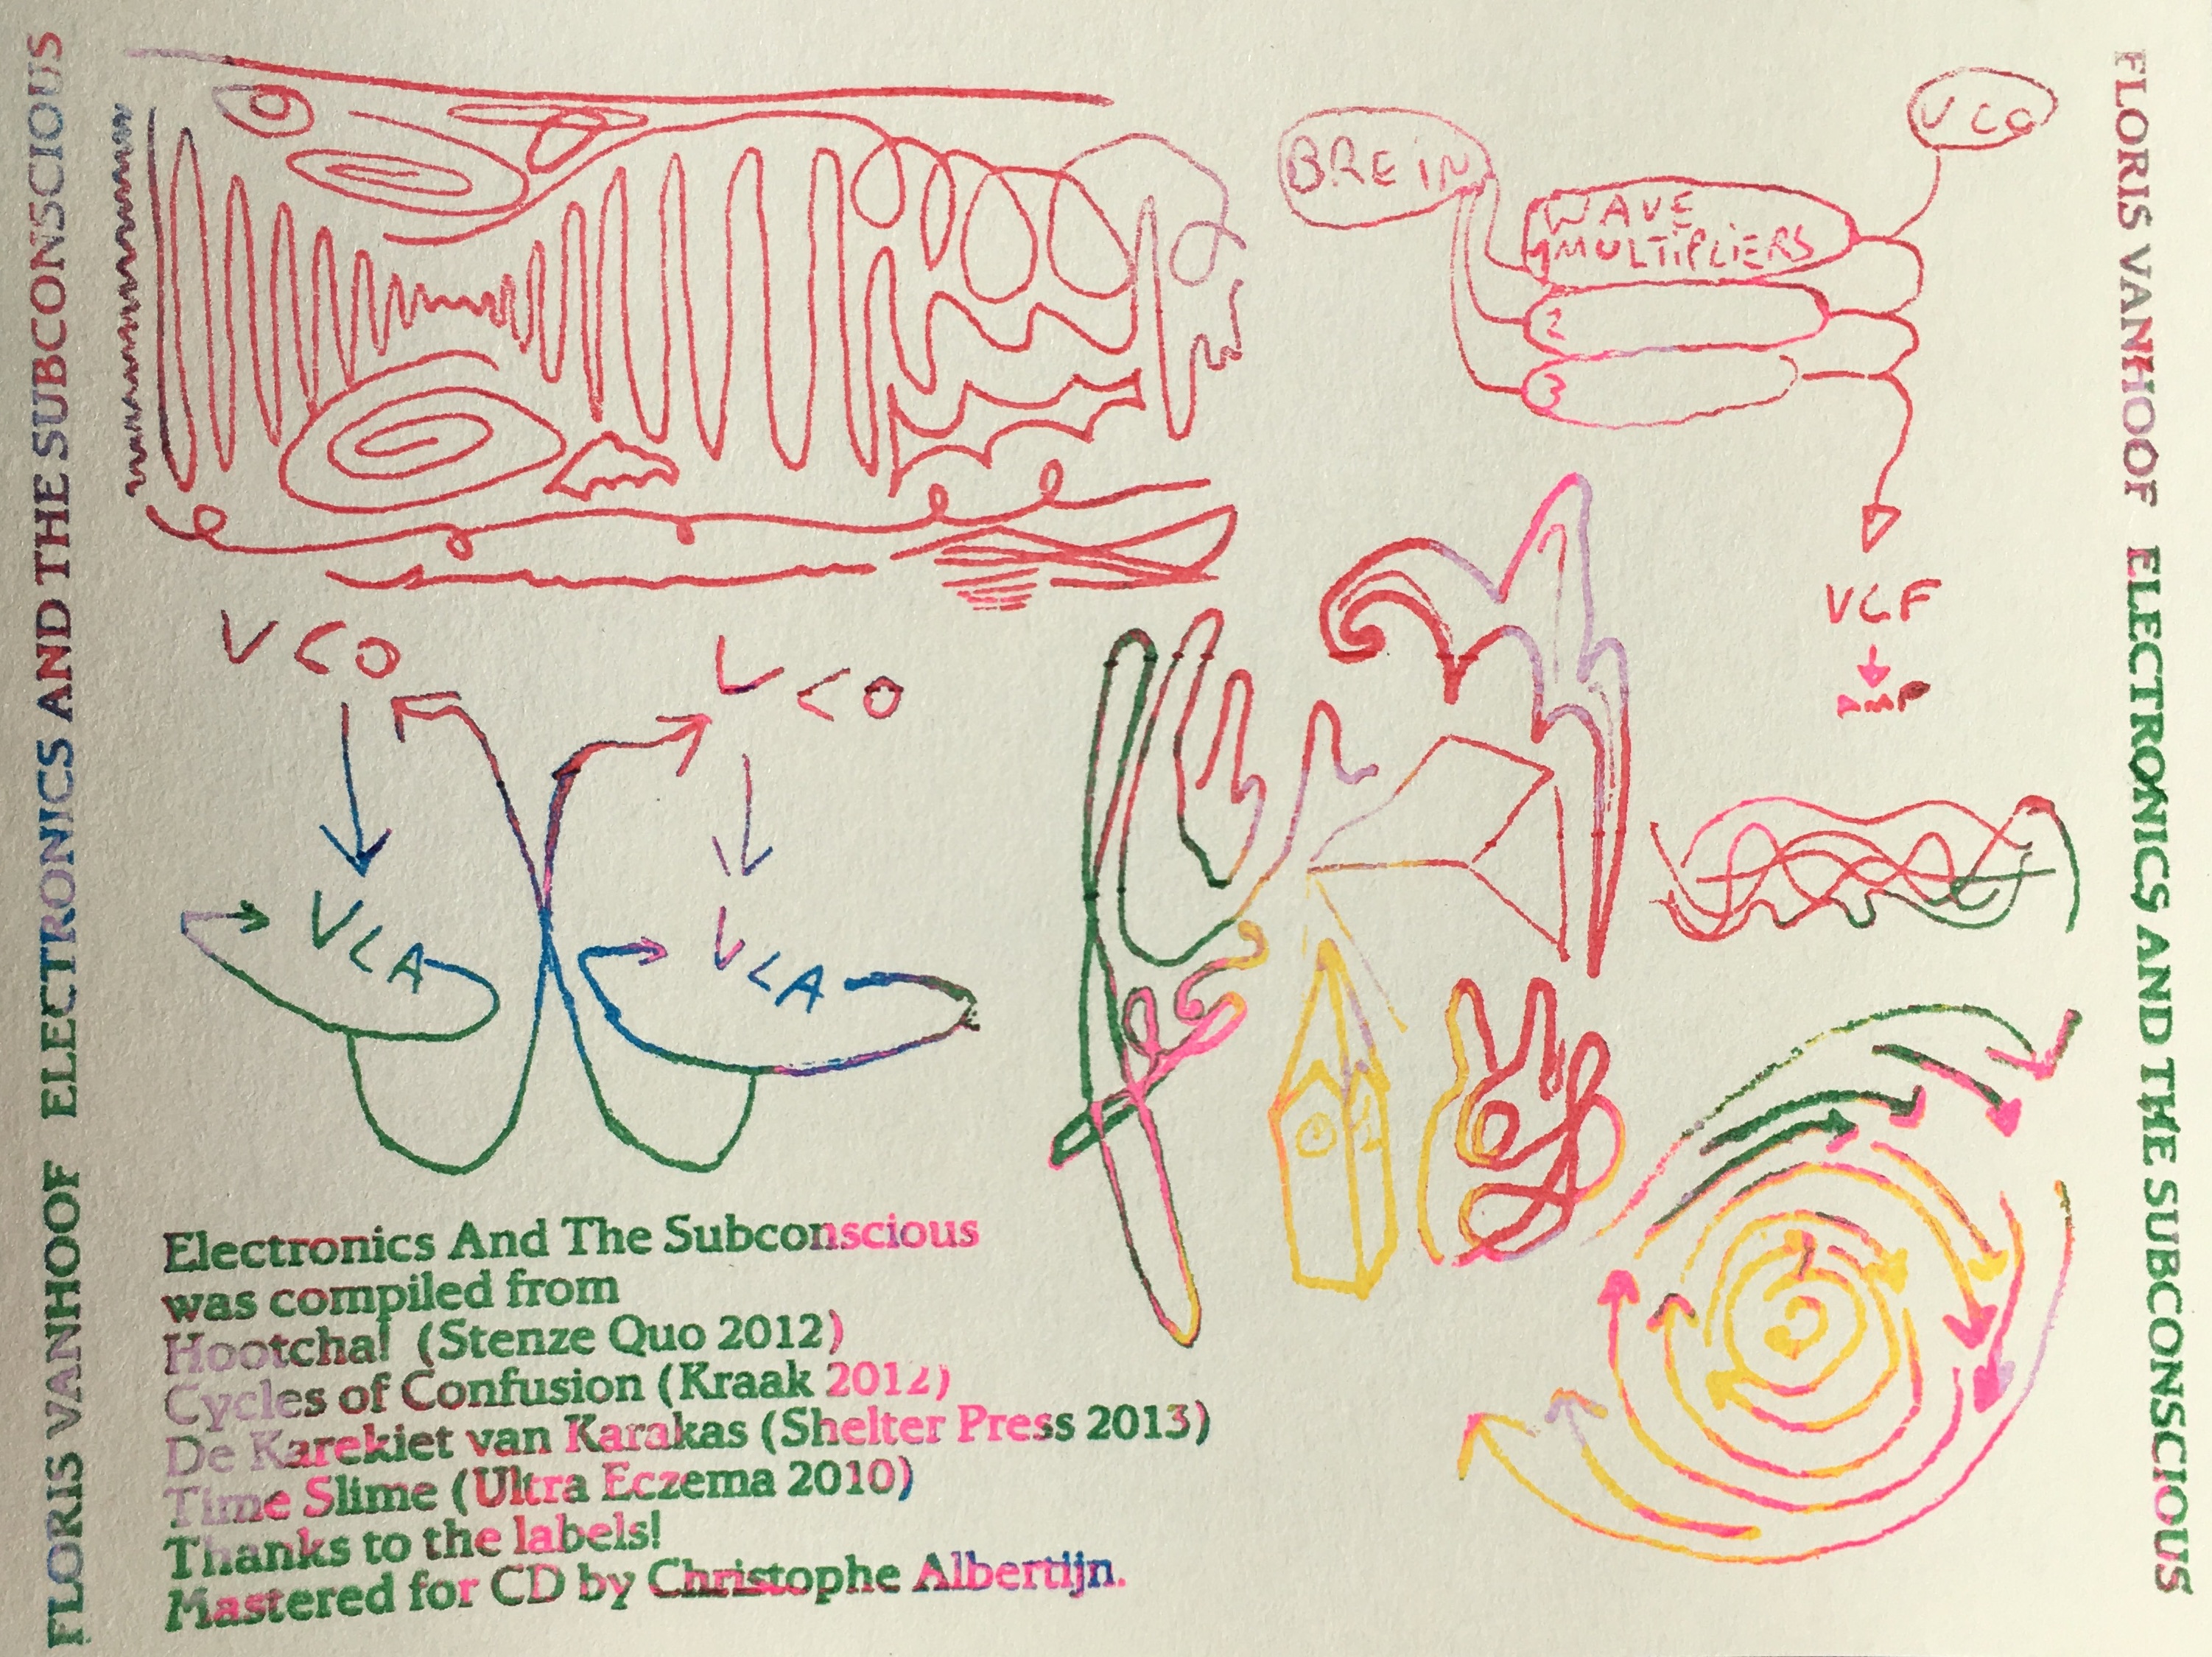 FLORIS VANHOOF ELECTRONICS AND THE SUBCONSCIOUS
BREIN
VCO
WAVE
MULTIPLIERS
2
3
VCF
AMP
VCO
VCO
VCA
VCA
Electronics And The Subconscious
was compiled from
Hootcha! (Stenze Quo 2012)
Cycles of Confusion (Kraak 2012)
De Karekiet van Karakas (Shelter Press 2013)
Time Slime (Ultra Eczema 2010)
Thanks to the labels!
Mastered for CD by Christophe Albertijn.
FLORIS VANHOOF ELECTRONICS AND THE SUBCONSCIOUS